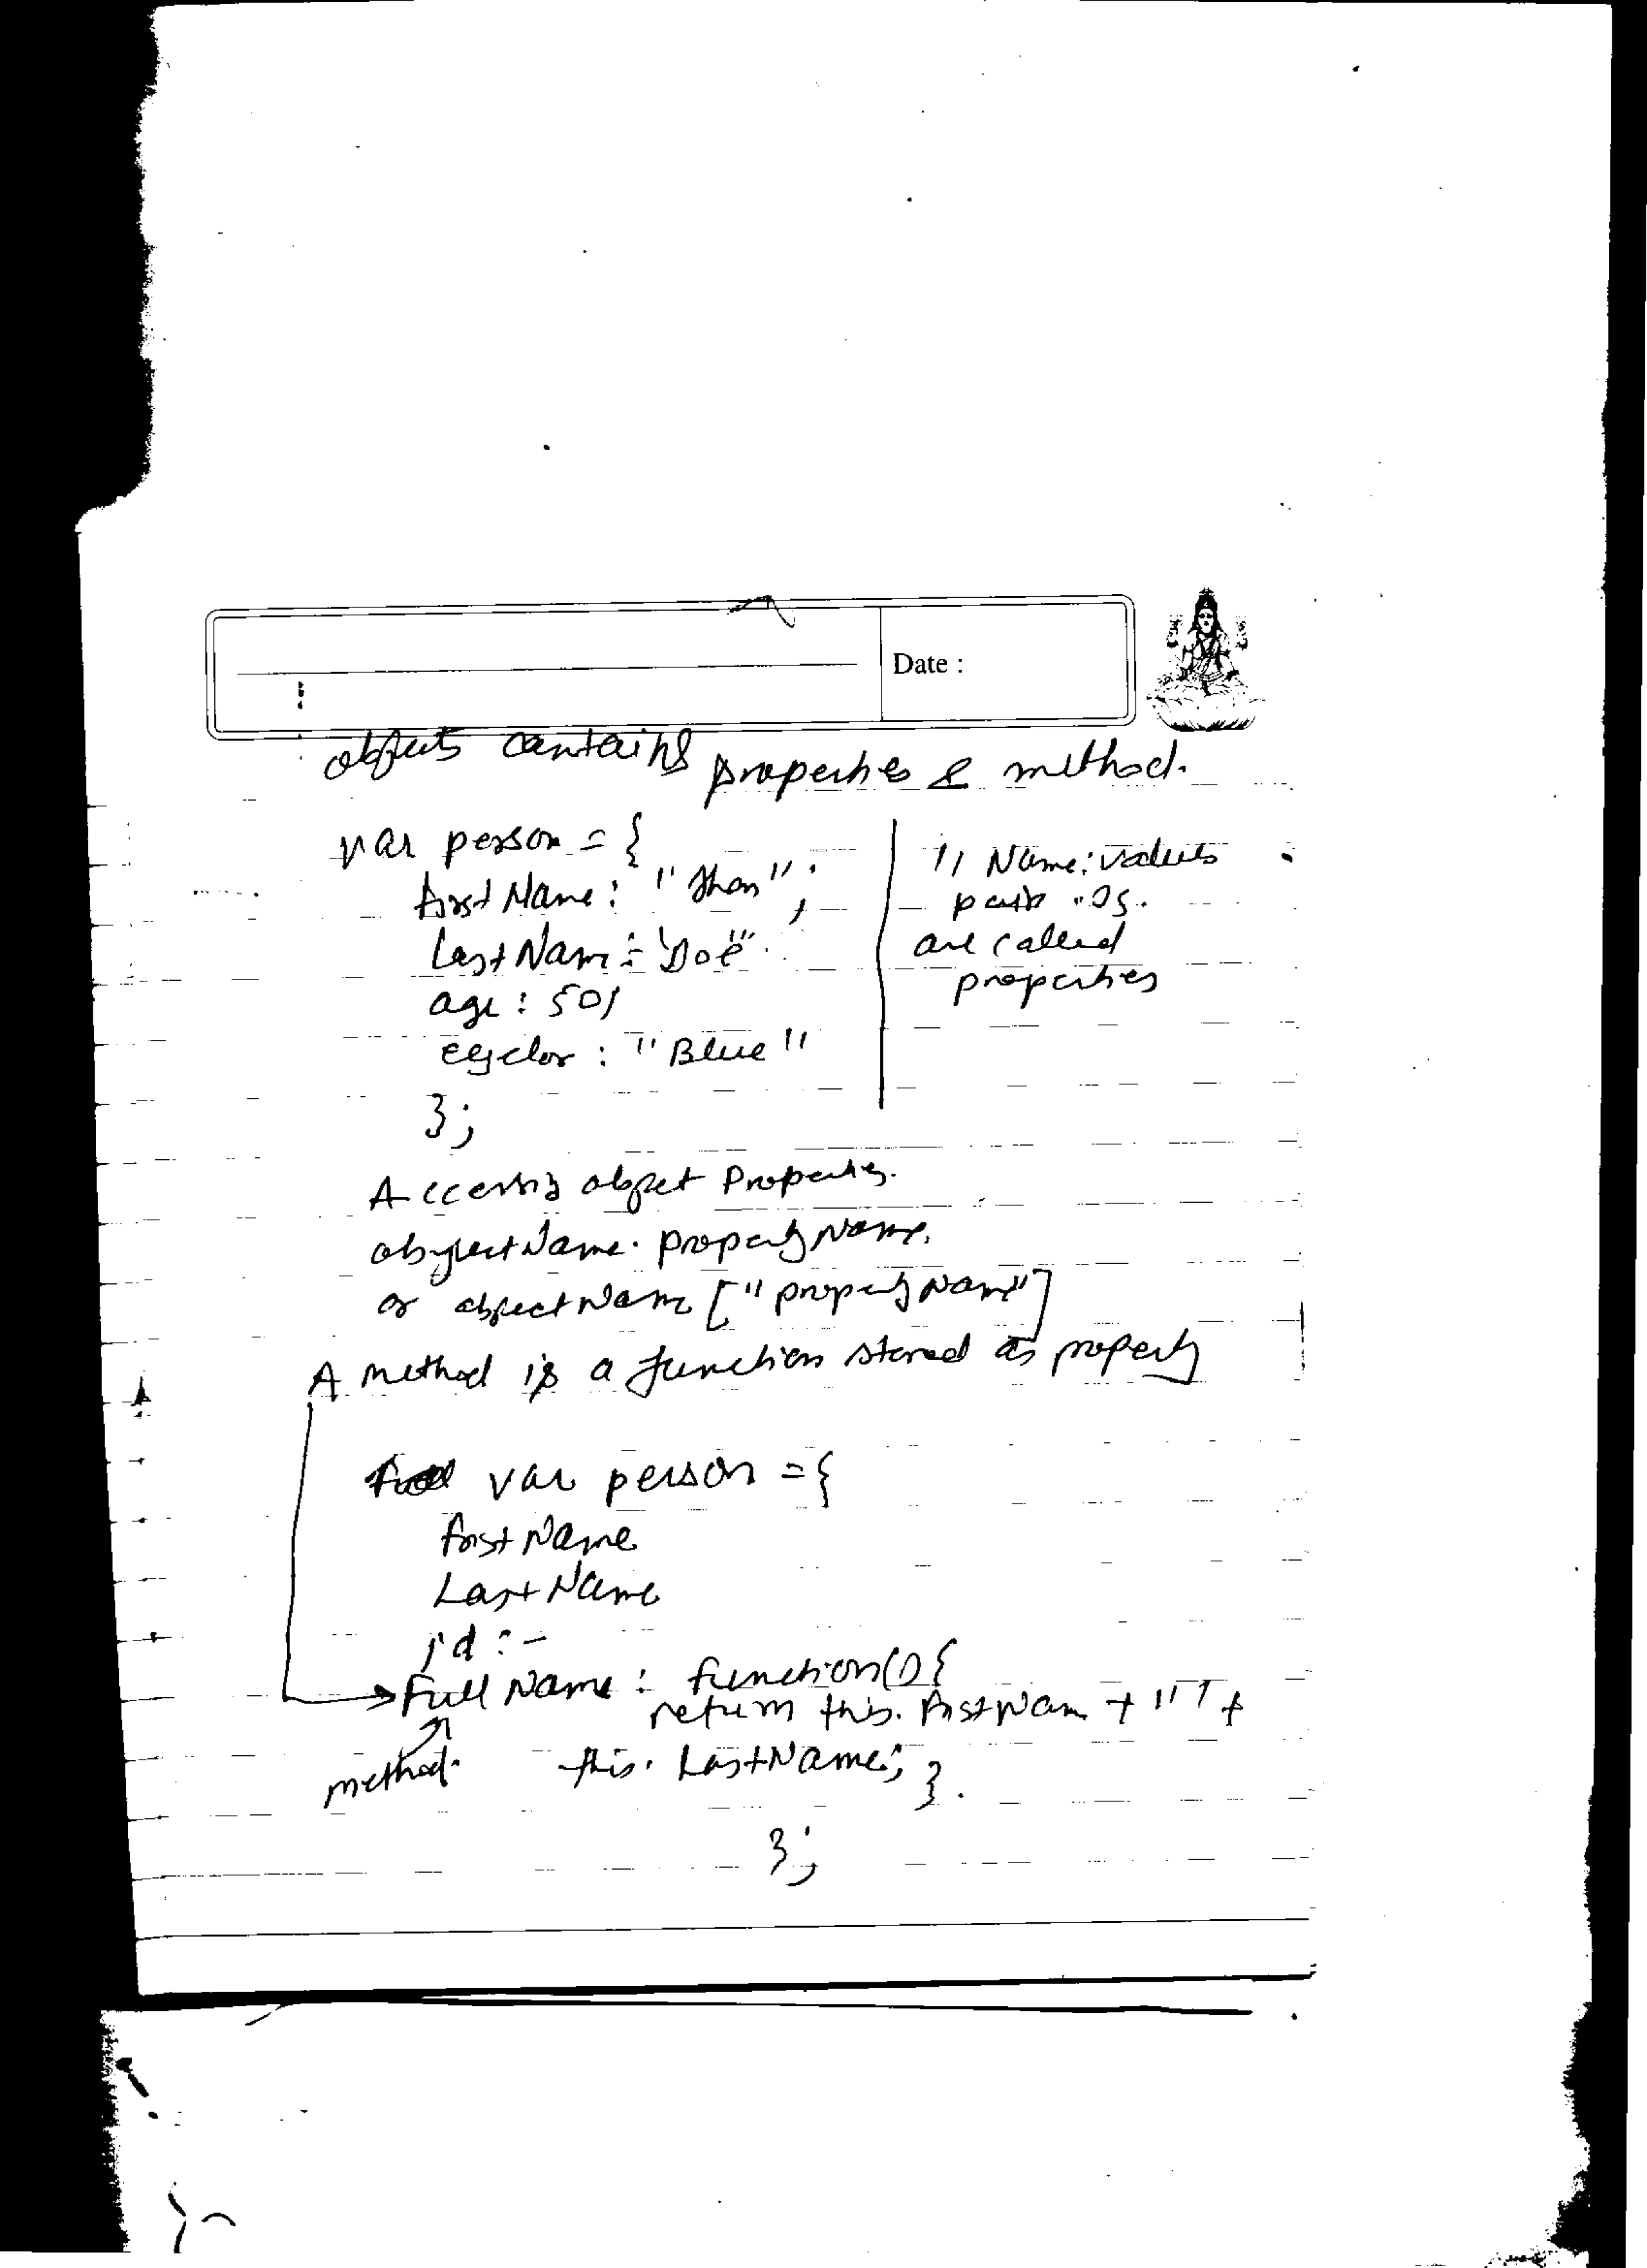 Date :
objects contains properties & method.
var person = {
firstName : "Jhon" ;
LastName : "Doe"
age : 50,
eyeclor : "Blue"
};
// Name: values
pair
are called
properties
Accessing object Properties.
objectName. propertyName.
or objectName ["propertyName"]
A method is a function stored as property
var person = {
firstName
LastName
id : -
Full Name : function() {
return this. firstNam + " " +
method. this. LastName; }.
};